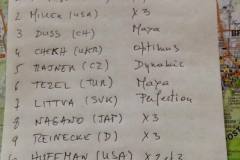 2 MILLER (USA) X3
3 DUSS (CH) Maya
4 CHEKH (UKR) Optimus
5 HAJNER (CZ) Dynamic
6 TEZEL (TUR) Maya
7 LITTVA (SVK) Perfection
8 NAGANO (JAP) X3
9 REINECKE (D) X3
HUFFMAN (USA)